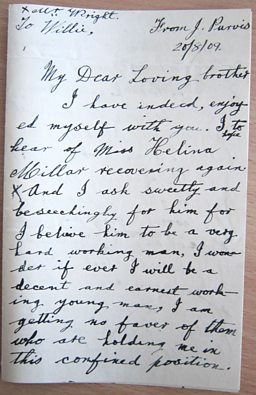 x Mr. Wright.
To Willie,
From J. Purvis
20/8/09.
My Dear Loving brother
I have indeed, enjoy-
ed myself with you. I hope to
hear of Miss Helina
Millar recovering again
x And I ask sweetly and
beseechingly for him for
I belive him to be a very
hard working man, I won-
der if ever I will be a
decent and earnest work-
ing young man, I am
getting no faver of them
who are holding me in
this confined position.